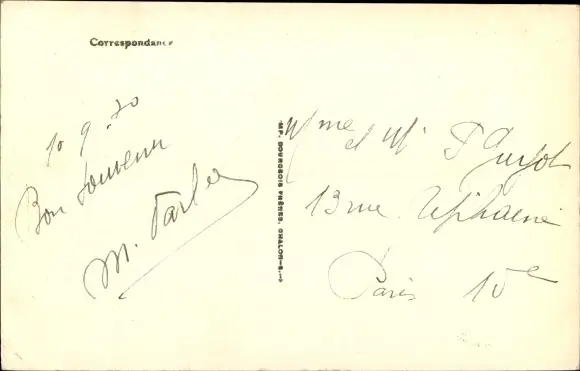 Correspondance
10 9 30
Bon souvenir
M.
IMP. BOURGEOIS FRÈRES, CHALON-S.-S
Mme et Mr
13 rue
Paris 15e